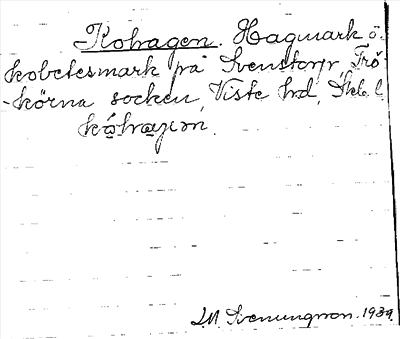 Kohagen. Hagmark o.
kobetesmark på Svenstorp, Trö
-körna socken, Viste hrd, Skb. l.
kóhagen.
S.M. Svenungsson. 1939.